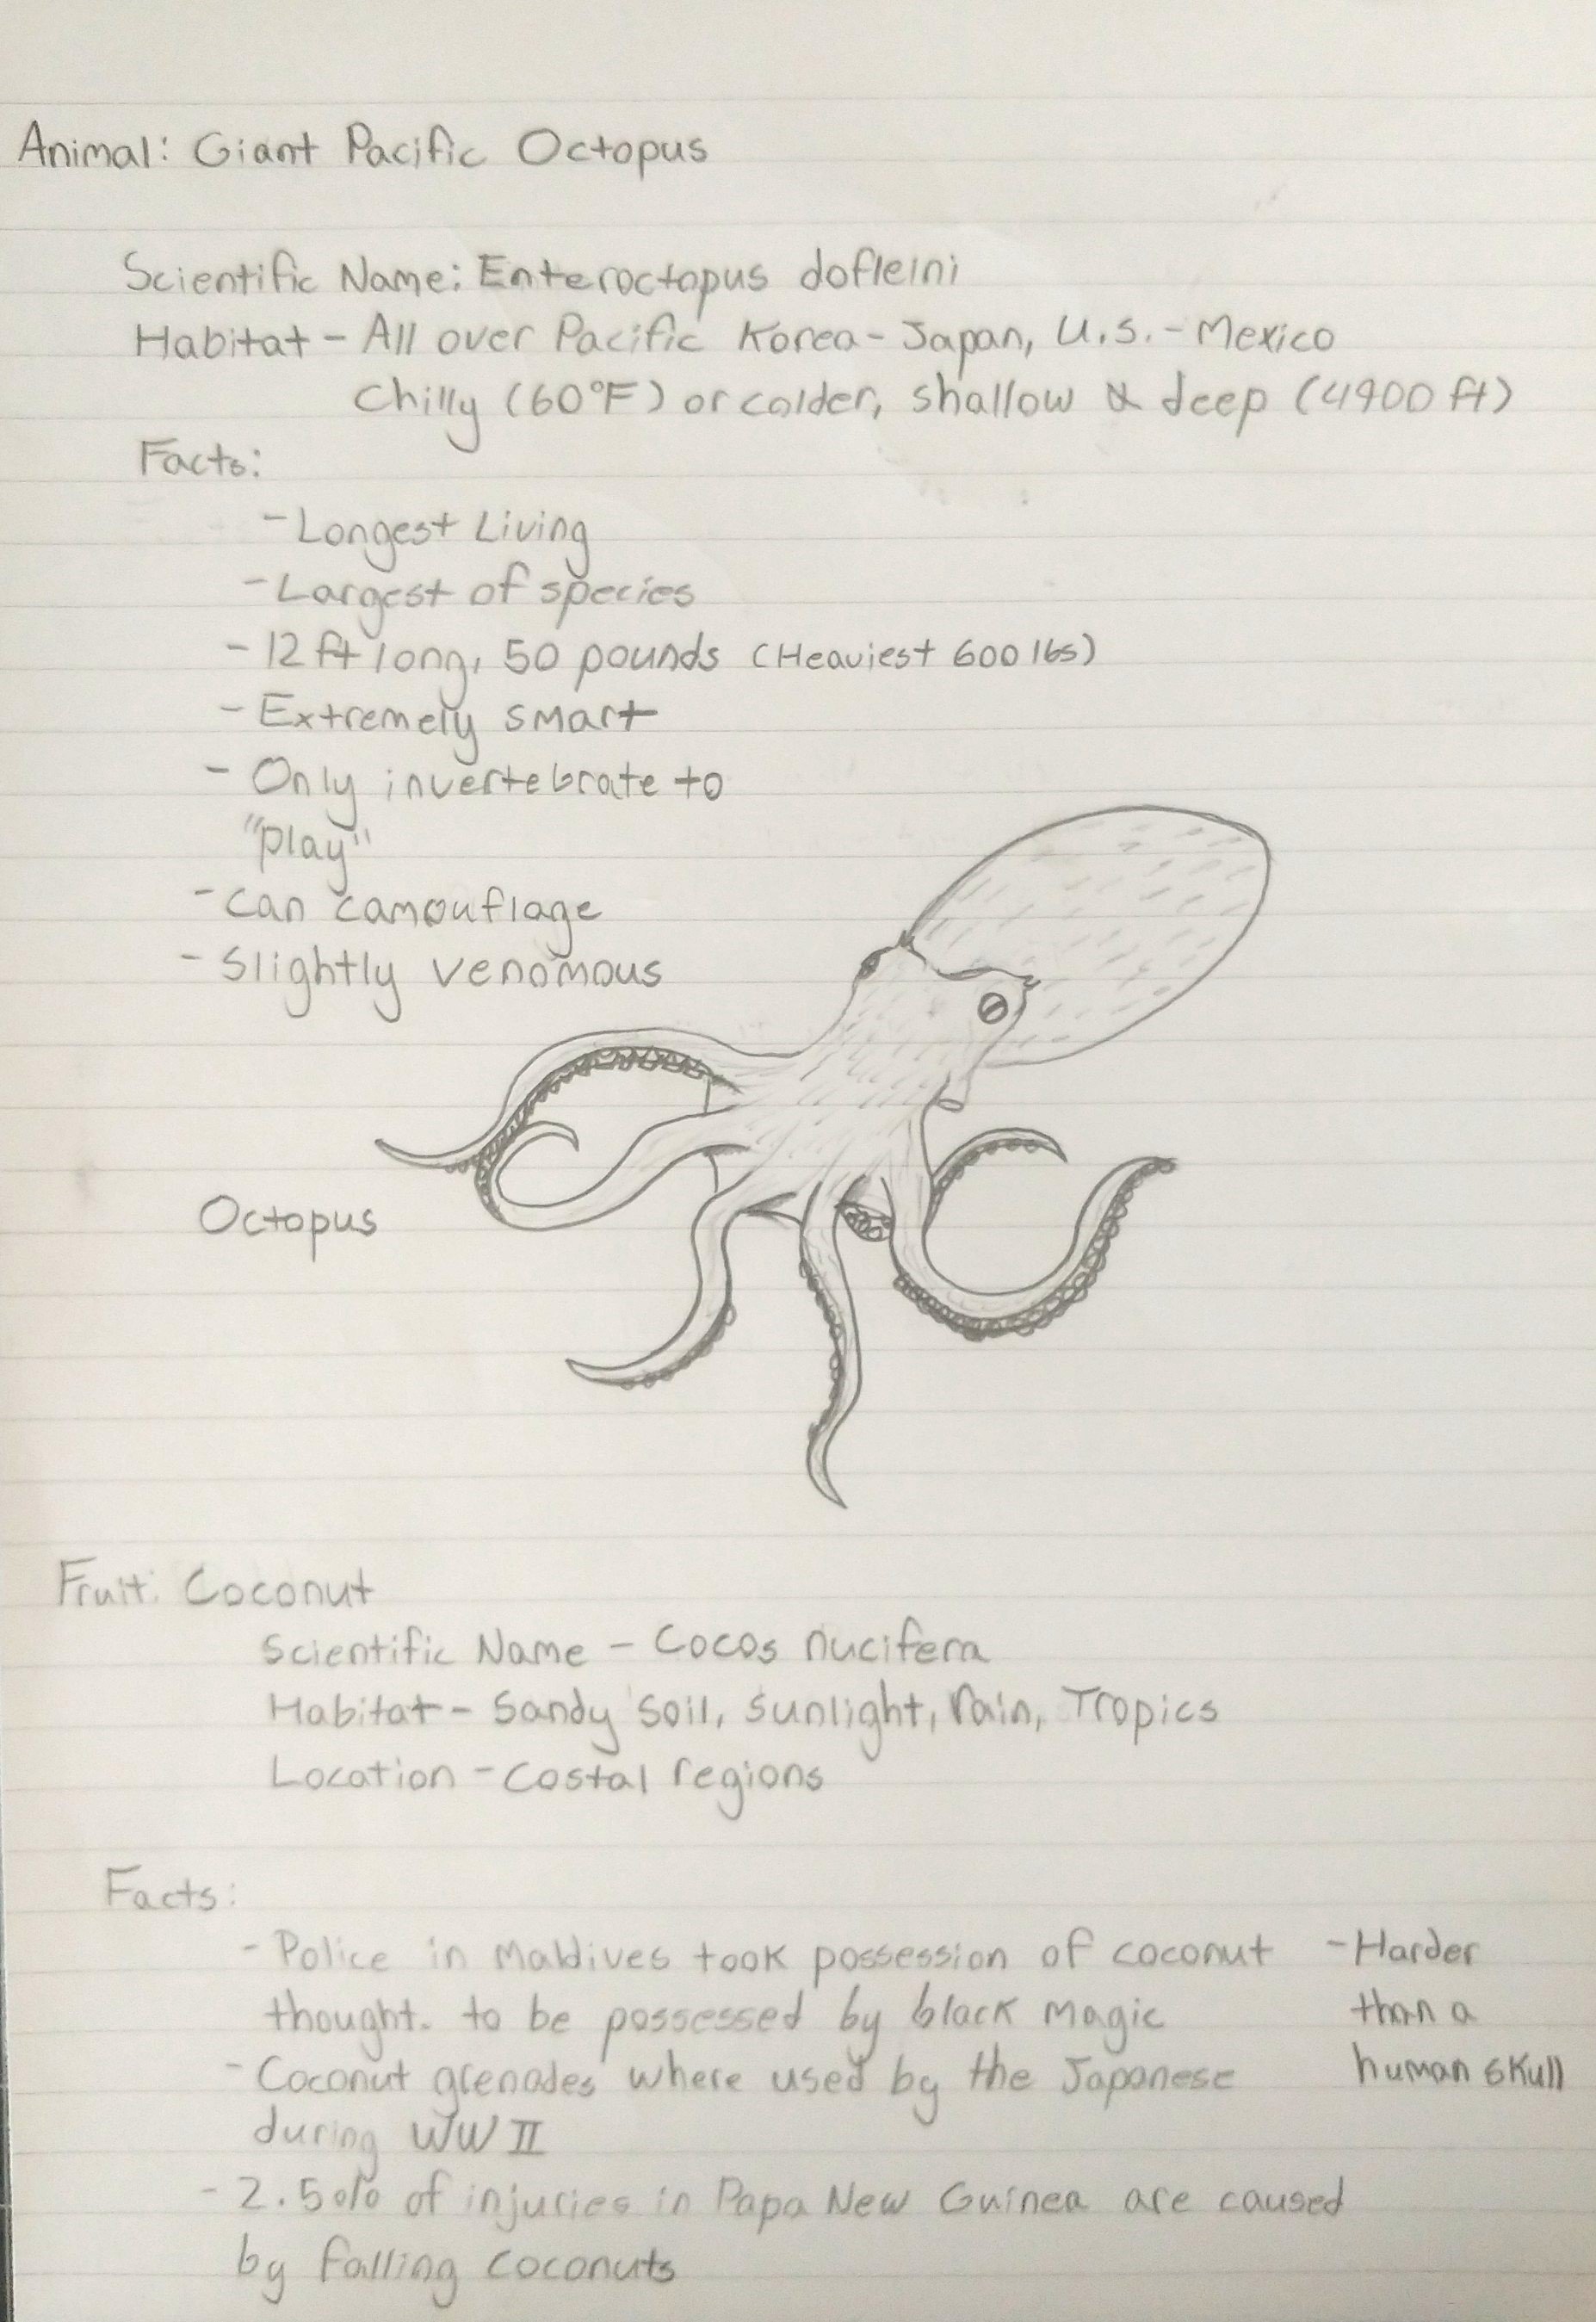 Animal: Giant Pacific Octopus
Scientific Name: Enteroctopus dofleini
Habitat - All over Pacific Korea - Japan, U.S. - Mexico
Chilly (60°F) or colder, shallow & deep (4900 ft)
Facts:
- Longest Living
- Largest of species
- 12 ft long, 50 pounds (Heaviest 600 lbs)
- Extremely smart
- Only invertebrate to
"play"
- can camouflage
- Slightly venomous
Octopus
Fruit: Coconut
Scientific Name - Cocos nucifera
Habitat - Sandy soil, sunlight, rain, Tropics
Location - Costal regions
Facts:
- Police in Maldives took possession of coconut
thought. to be possessed by black magic
- Coconut grenades where used by the Japanese
during WW II
- 2.5% of injuries in Papa New Guinea are caused
by falling coconuts
- Harder
than a
human skull